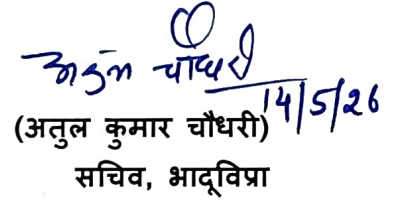 अतुल चौधरी
14/5/26
(अतुल कुमार चौधरी)
सचिव, भादूविप्रा